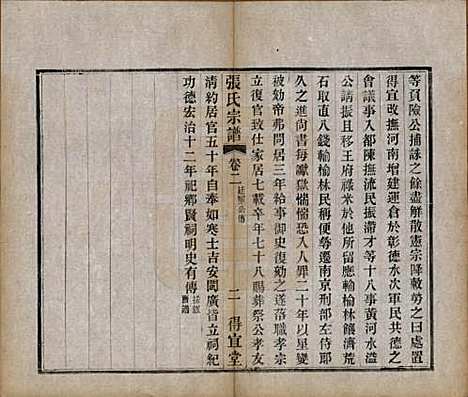 等負險公捕誅之餘盡解散憲宗降敕勞之曰處置
得宜改撫河南增建運倉於彰德水次軍民共德之
會議事入都陳撫流民振滯才等十八事黃河水溢
公請振且移王府祿米於他所留應輸榆林餉濟荒
石取直八錢輸榆林民稱便勢遷南京刑部左侍郎
久之進尚書每讞獄惴惴恐入人罪二十年以星變
被劾帝弗問居三年給事御史復劾之遂落職孝宗
立復官致仕家居七載卒年七十八賜葬祭公孝友
張氏宗譜
卷二
二
得宜堂
清約居官五十年自奉如寒士吉安閩廣皆立祠紀
功德宏治十二年祀鄉賢祠明史有傳